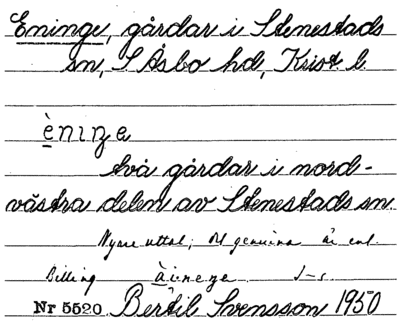 Eninge, gårdar i Stenestads
sn, S Åsbo hd, Krist. l.
èninge
två gårdar i nord-
västra delen av Stenestads sn.
Nyare uttal; det genuina är enl.
Billing
Nr 5520. Bertil Svensson 1950